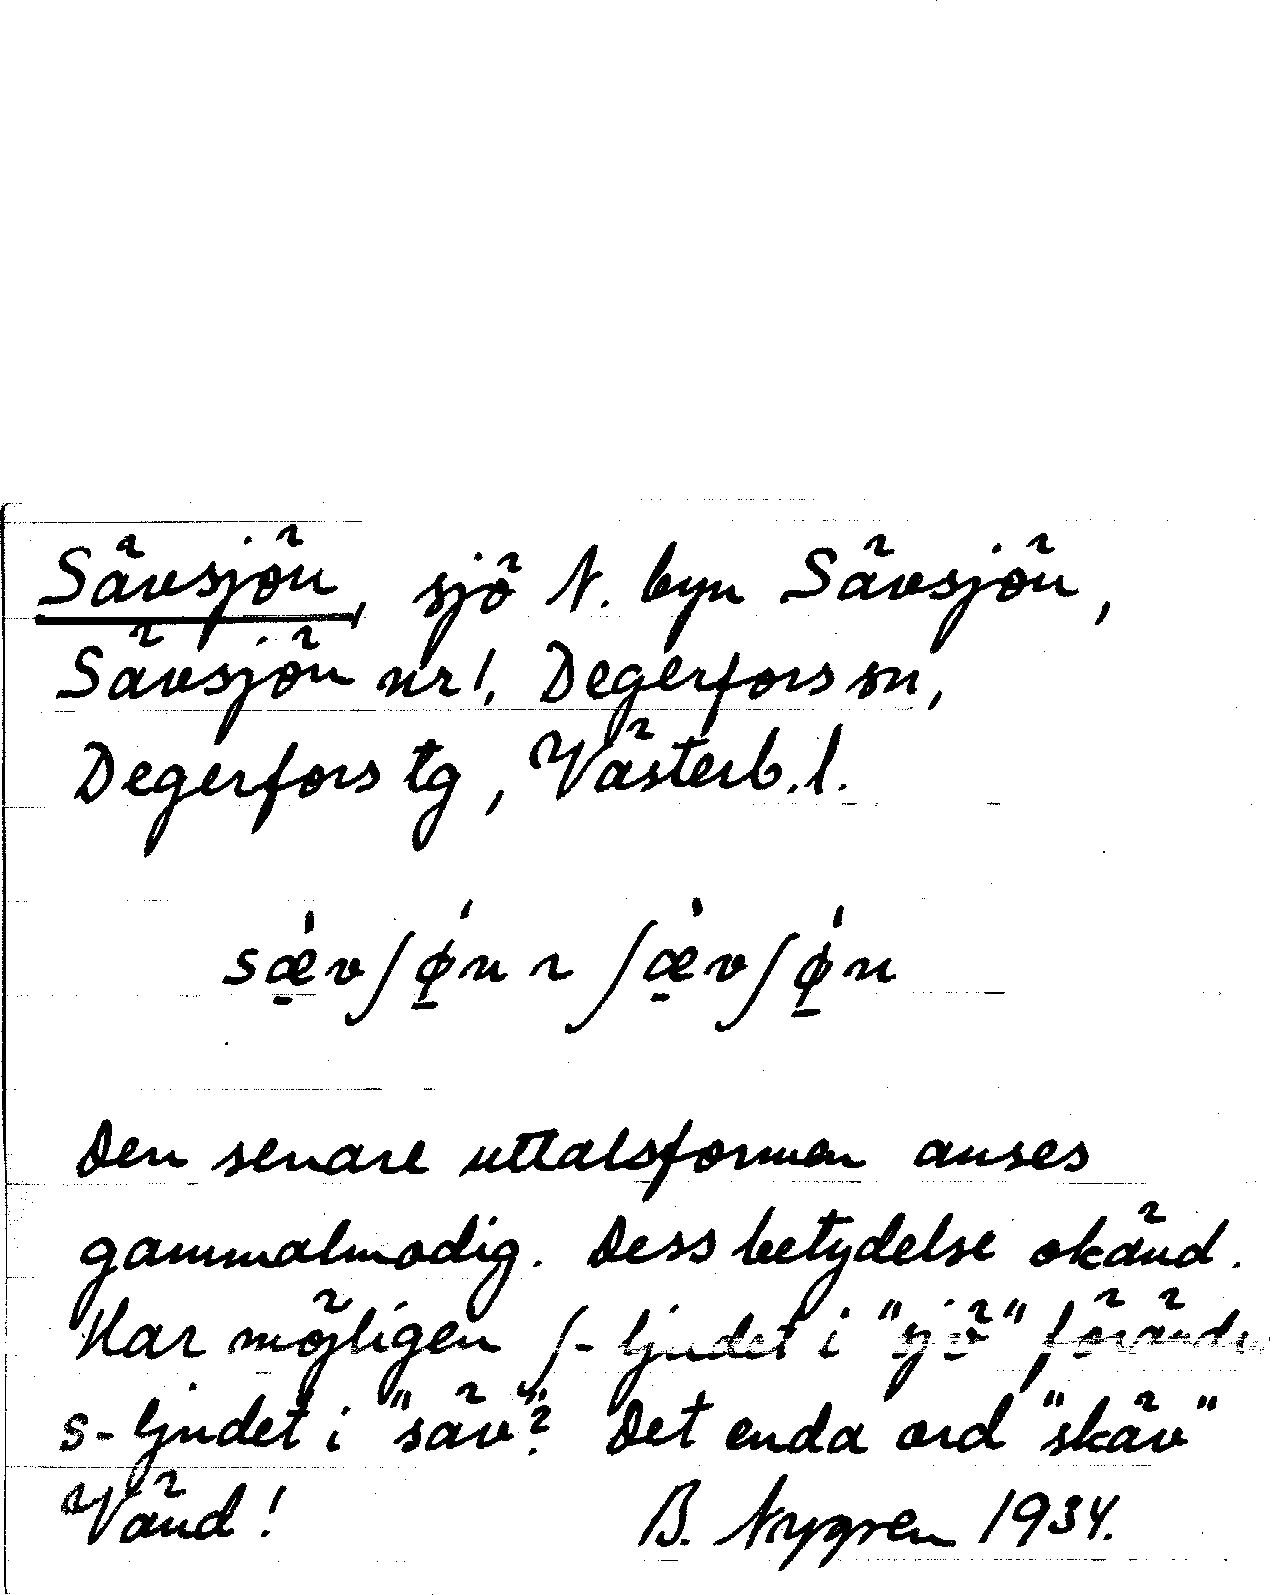 Sävsjön, sjö N. byn Sävsjön,
Sävsjön nr 1, Degerfors sn,
Degerfors tg, Västerb. l.
sǽ̱vʃǿ̱n ~ ʃǽ̱vʃǿ̱n
Den senare uttalsformen anses
gammalmodig. Dess betydelse okänd.
Har möjligen ʃ-ljudet i "sjö"
s-ljudet i "säv"? Det enda ord "skäv"
Vänd! B. Nygren 1934.